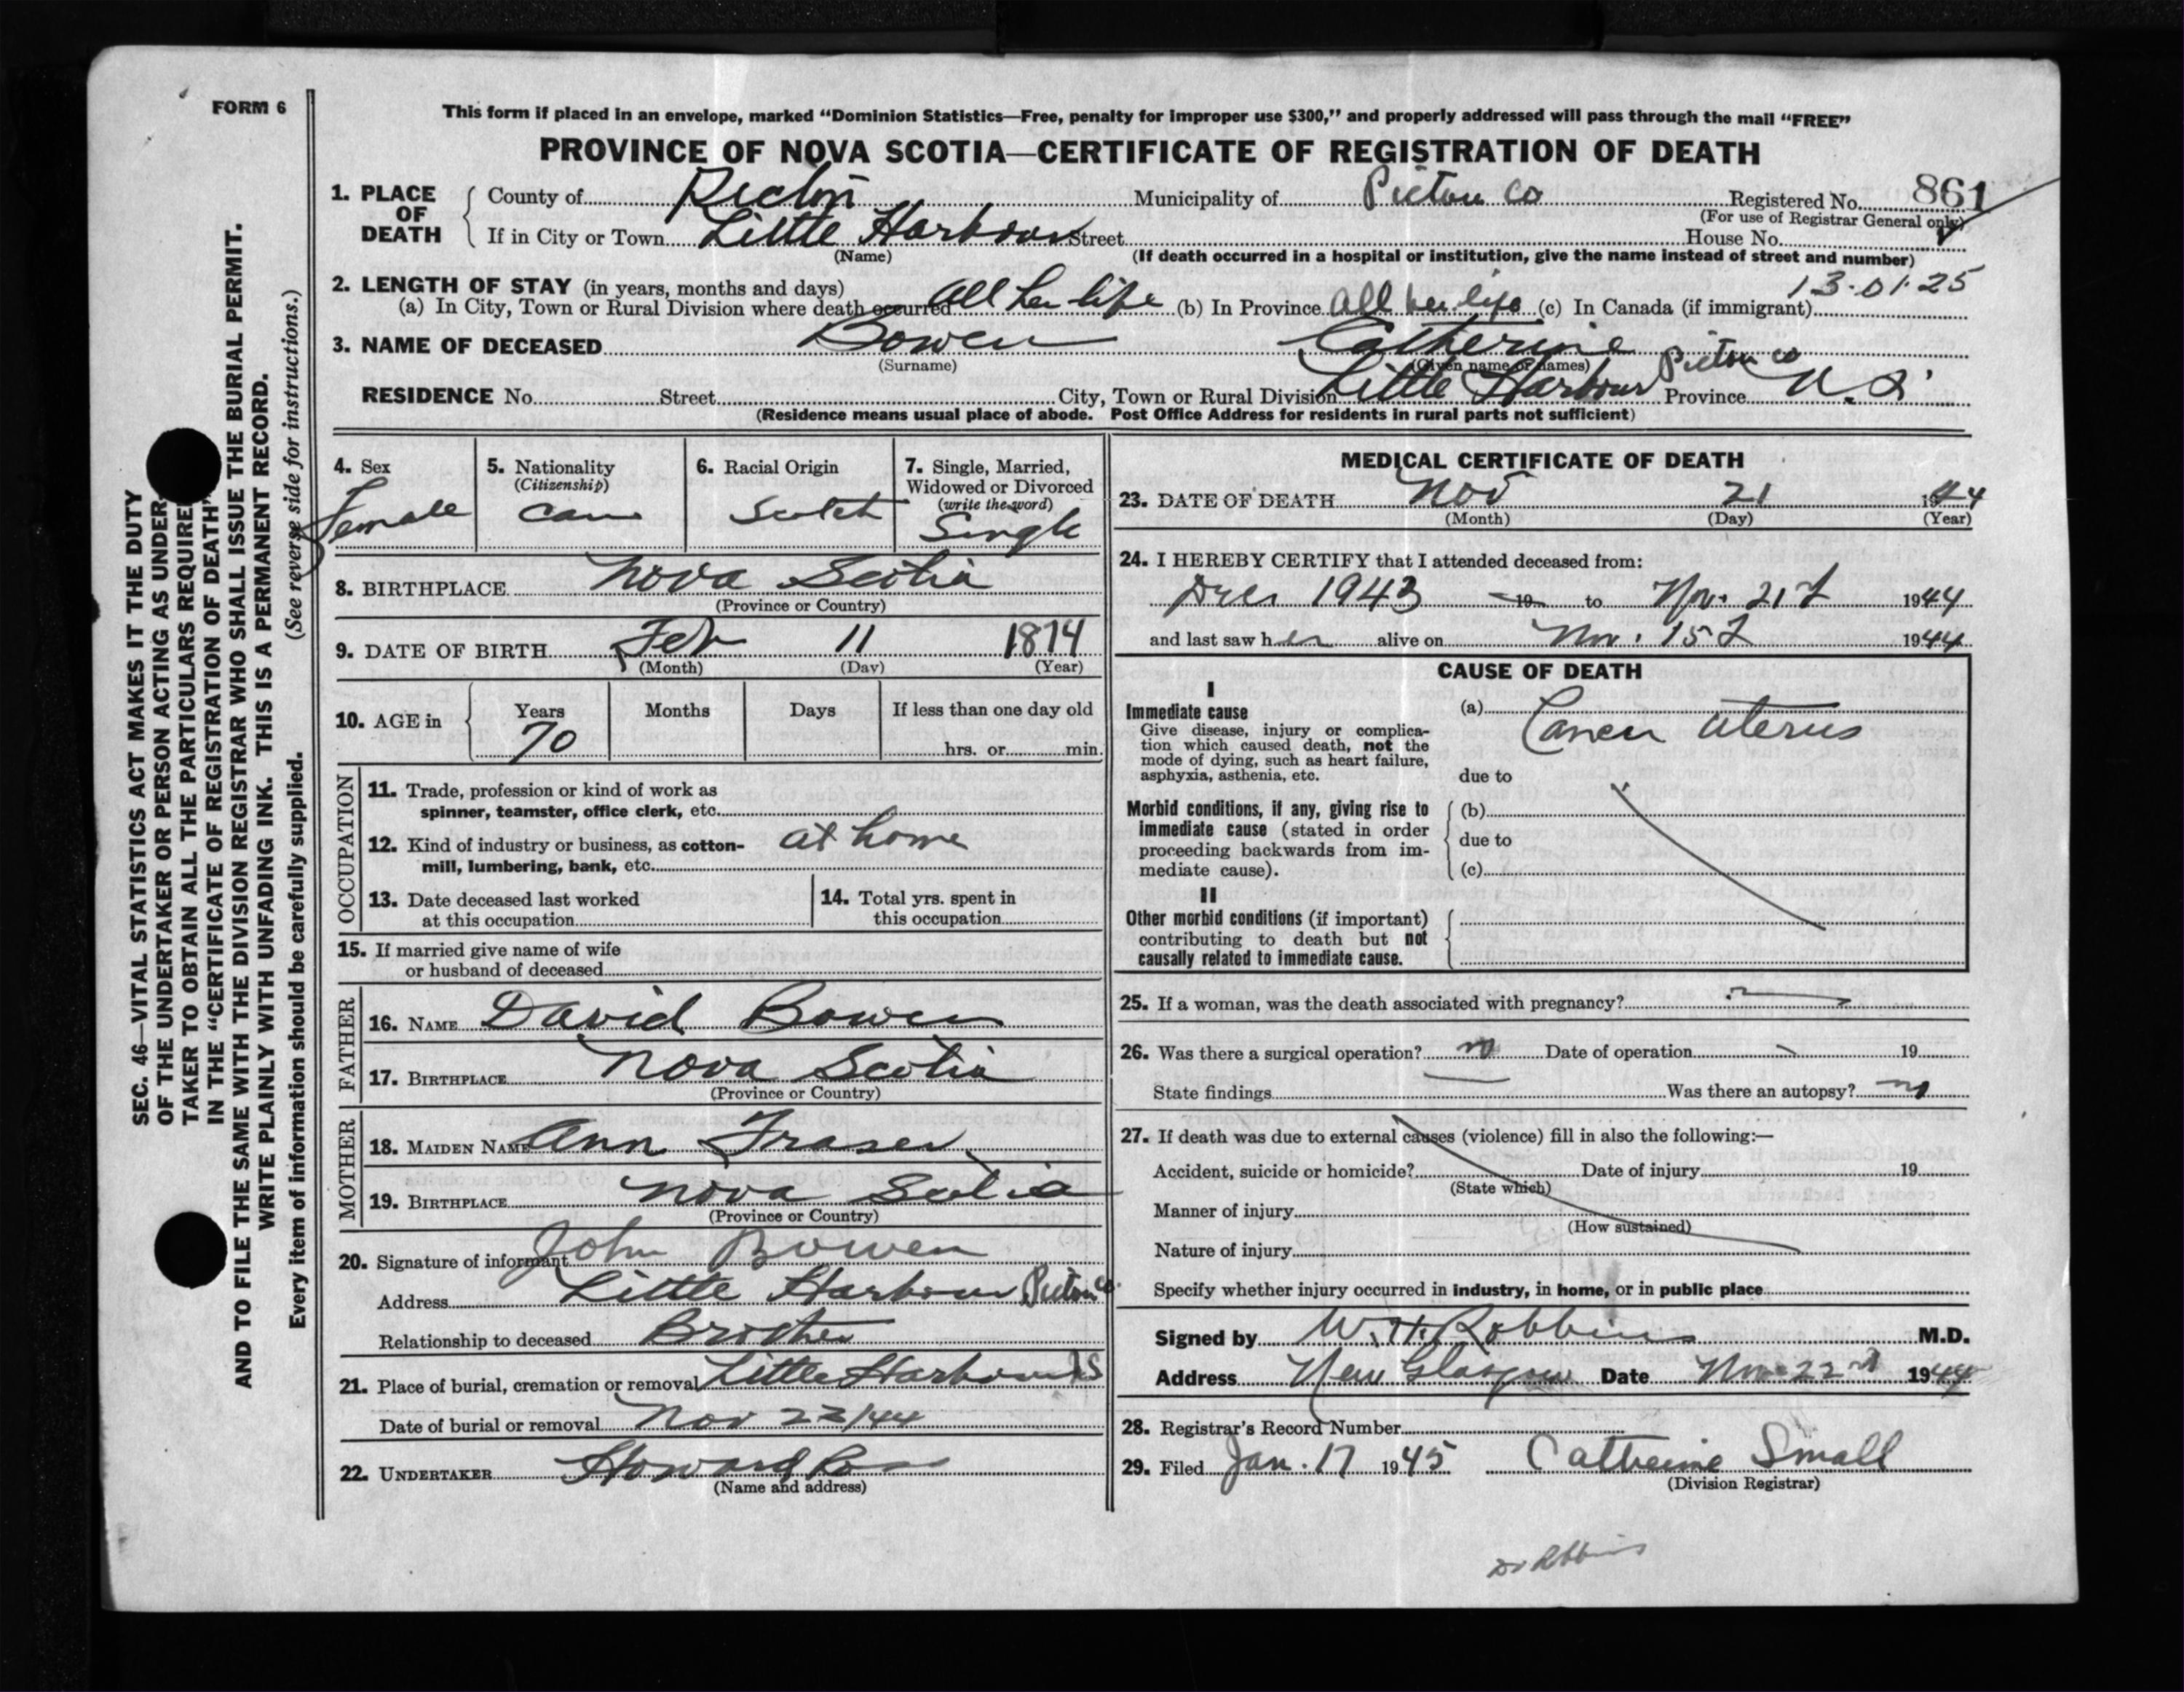 FORM 6
This form if placed in an envelope, marked “Dominion Statistics—Free, penalty for improper use $300,” and properly addressed will pass through the mail “FREE”
PROVINCE OF NOVA SCOTIA—CERTIFICATE OF REGISTRATION OF DEATH
1. PLACE OF DEATH County of Pictou Municipality of Pictou Co Registered No. 861
(For use of Registrar General only)
If in City or Town Little Harbour Street House No.
(Name) (If death occurred in a hospital or institution, give the name instead of street and number)
13-01-25
2. LENGTH OF STAY (in years, months and days)
(a) In City, Town or Rural Division where death occurred All her life (b) In Province All her life (c) In Canada (if immigrant)
3. NAME OF DECEASED Bowen Catherine
(Surname) (Given name or names)
RESIDENCE No. Street City, Town or Rural Division Little Harbour Pictou Co Province N.S.
(Residence means usual place of abode. Post Office Address for residents in rural parts not sufficient)
4. Sex Female
5. Nationality (Citizenship) Can
6. Racial Origin Scotch
7. Single, Married, Widowed or Divorced (write the word) Single
8. BIRTHPLACE Nova Scotia
(Province or Country)
9. DATE OF BIRTH Feb 11 1874
(Month) (Day) (Year)
10. AGE in Years Months Days If less than one day old
70 hrs. or min.
OCCUPATION
11. Trade, profession or kind of work as
spinner, teamster, office clerk, etc.
12. Kind of industry or business, as cotton- at home
mill, lumbering, bank, etc.
13. Date deceased last worked
at this occupation
14. Total yrs. spent in
this occupation
15. If married give name of wife
or husband of deceased
FATHER
16. NAME David Bowen
17. BIRTHPLACE Nova Scotia
(Province or Country)
MOTHER
18. MAIDEN NAME Ann Fraser
19. BIRTHPLACE Nova Scotia
(Province or Country)
20. Signature of informant John Bowen
Address Little Harbour Pictou Co.
Relationship to deceased Brother
21. Place of burial, cremation or removal Little Harbour NS
Date of burial or removal Nov 23/44
22. UNDERTAKER Howard Ross
(Name and address)
MEDICAL CERTIFICATE OF DEATH
23. DATE OF DEATH Nov 21 1944
(Month) (Day) (Year)
24. I HEREBY CERTIFY that I attended deceased from:
1943 19 to Nov. 21 1944
and last saw her alive on Nov. 15 1944
CAUSE OF DEATH
I
Immediate cause
Give disease, injury or complica-
tion which caused death, not the
mode of dying, such as heart failure,
asphyxia, asthenia, etc.
(a) Cancer uterus
due to
Morbid conditions, if any, giving rise to
immediate cause (stated in order
proceeding backwards from im-
mediate cause).
(b)
due to
(c)
II
Other morbid conditions (if important)
contributing to death but not
causally related to immediate cause.
25. If a woman, was the death associated with pregnancy?
26. Was there a surgical operation? no Date of operation 19
State findings Was there an autopsy? no
27. If death was due to external causes (violence) fill in also the following:—
Accident, suicide or homicide? Date of injury 19
(State which)
Manner of injury
(How sustained)
Nature of injury
Specify whether injury occurred in industry, in home, or in public place
Signed by W. H. Robbins M.D.
Address New Glasgow Date Nov 22nd 1944
28. Registrar’s Record Number
29. Filed Jan. 17 1945 Catherine Small
(Division Registrar)
Dr Robbins
SEC. 46—VITAL STATISTICS ACT MAKES IT THE DUTY
OF THE UNDERTAKER OR PERSON ACTING AS UNDER-
TAKER TO OBTAIN ALL THE PARTICULARS REQUIRE
IN THE “CERTIFICATE OF REGISTRATION OF DEATH”
AND TO FILE THE SAME WITH THE DIVISION REGISTRAR WHO SHALL ISSUE THE BURIAL PERMIT.
WRITE PLAINLY WITH UNFADING INK. THIS IS A PERMANENT RECORD.
Every item of information should be carefully supplied. (See reverse side for instructions.)